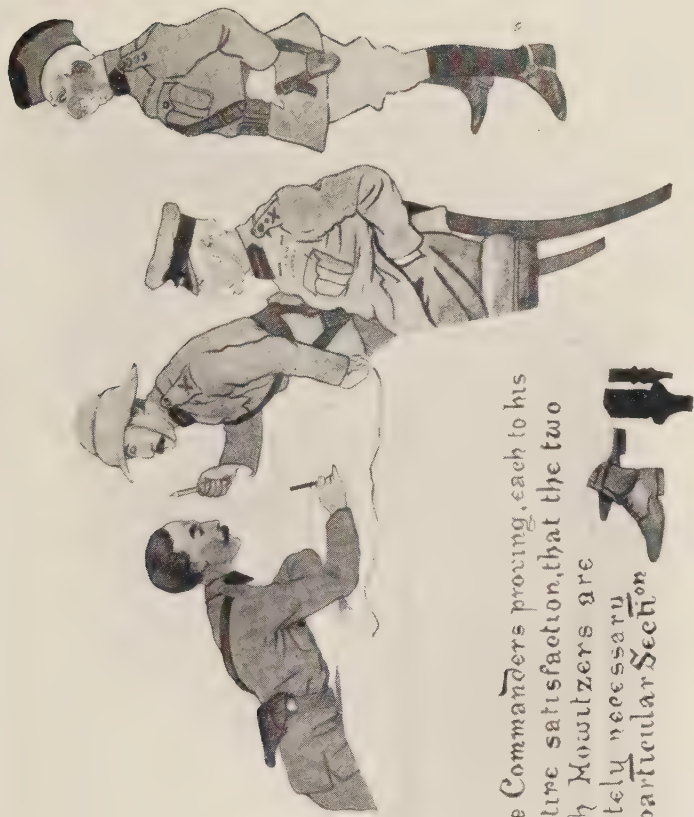 e Commanders proving, each to his
tire satisfaction, that the two
h Howitzers are
tely necessary
particular Section